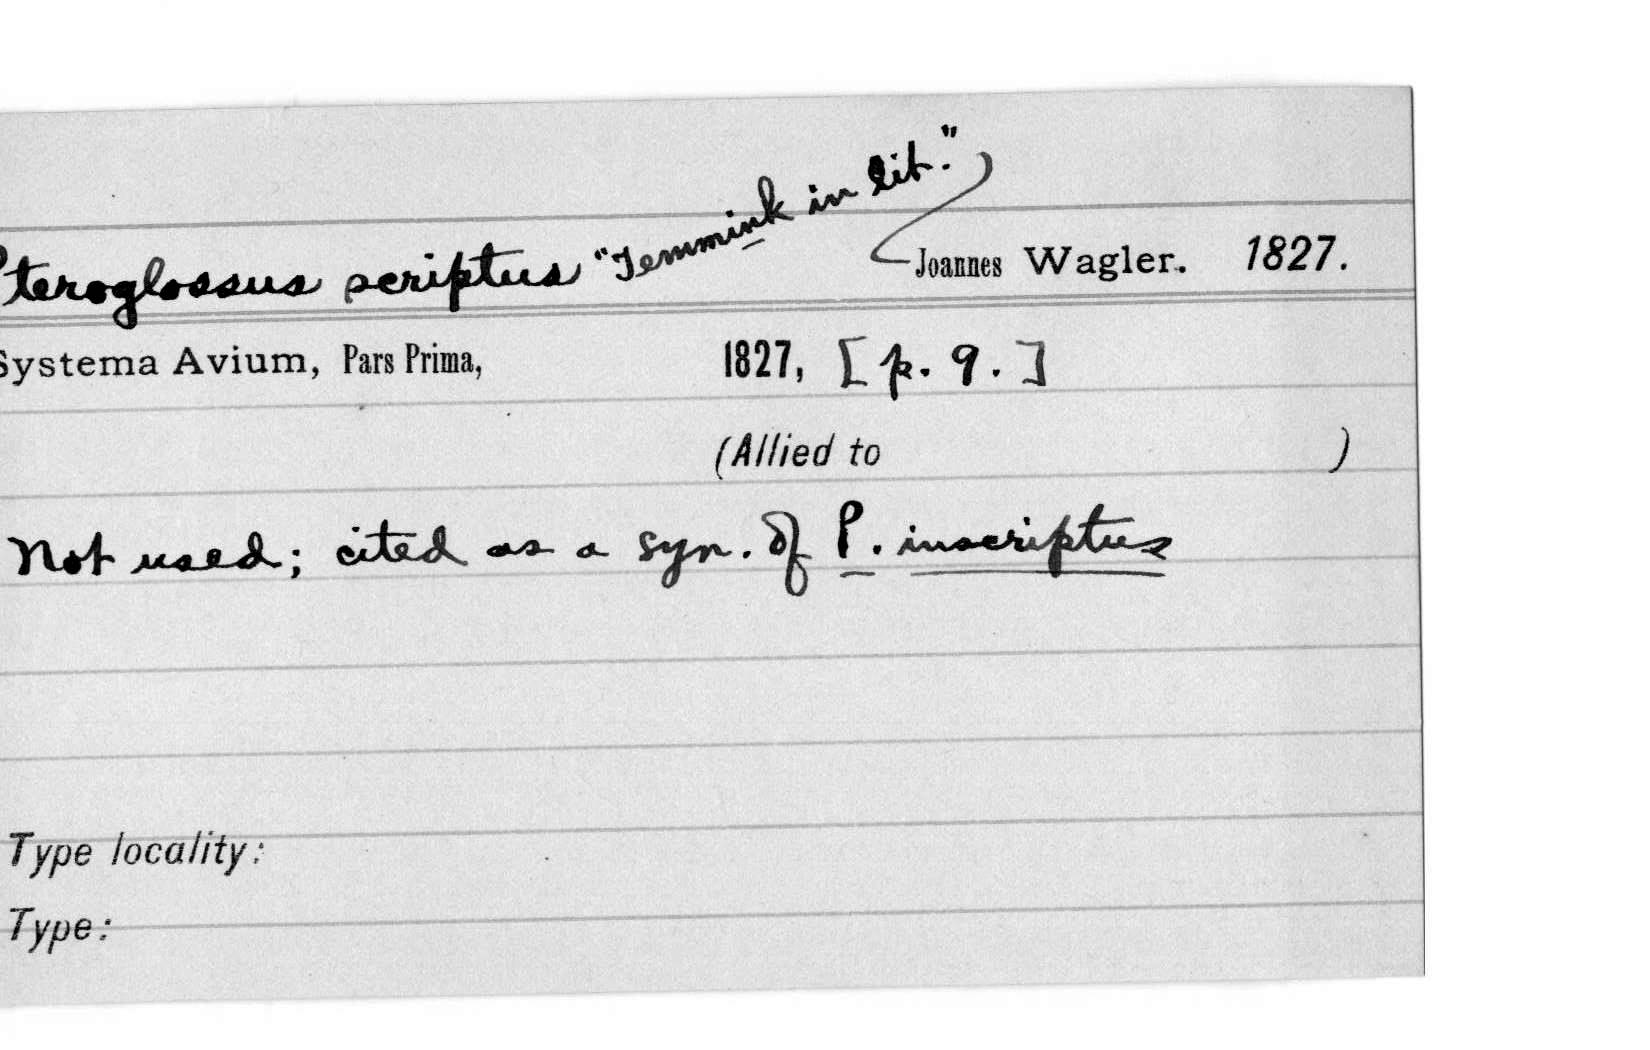 Pteroglossus scriptus "Temmink in lit." Joannes Wagler. 1827.
Systema Avium, Pars Prima, 1827, [p. 9.]
(Allied to )
Not used; cited as a syn. of P. inscriptus
Type locality:
Type: